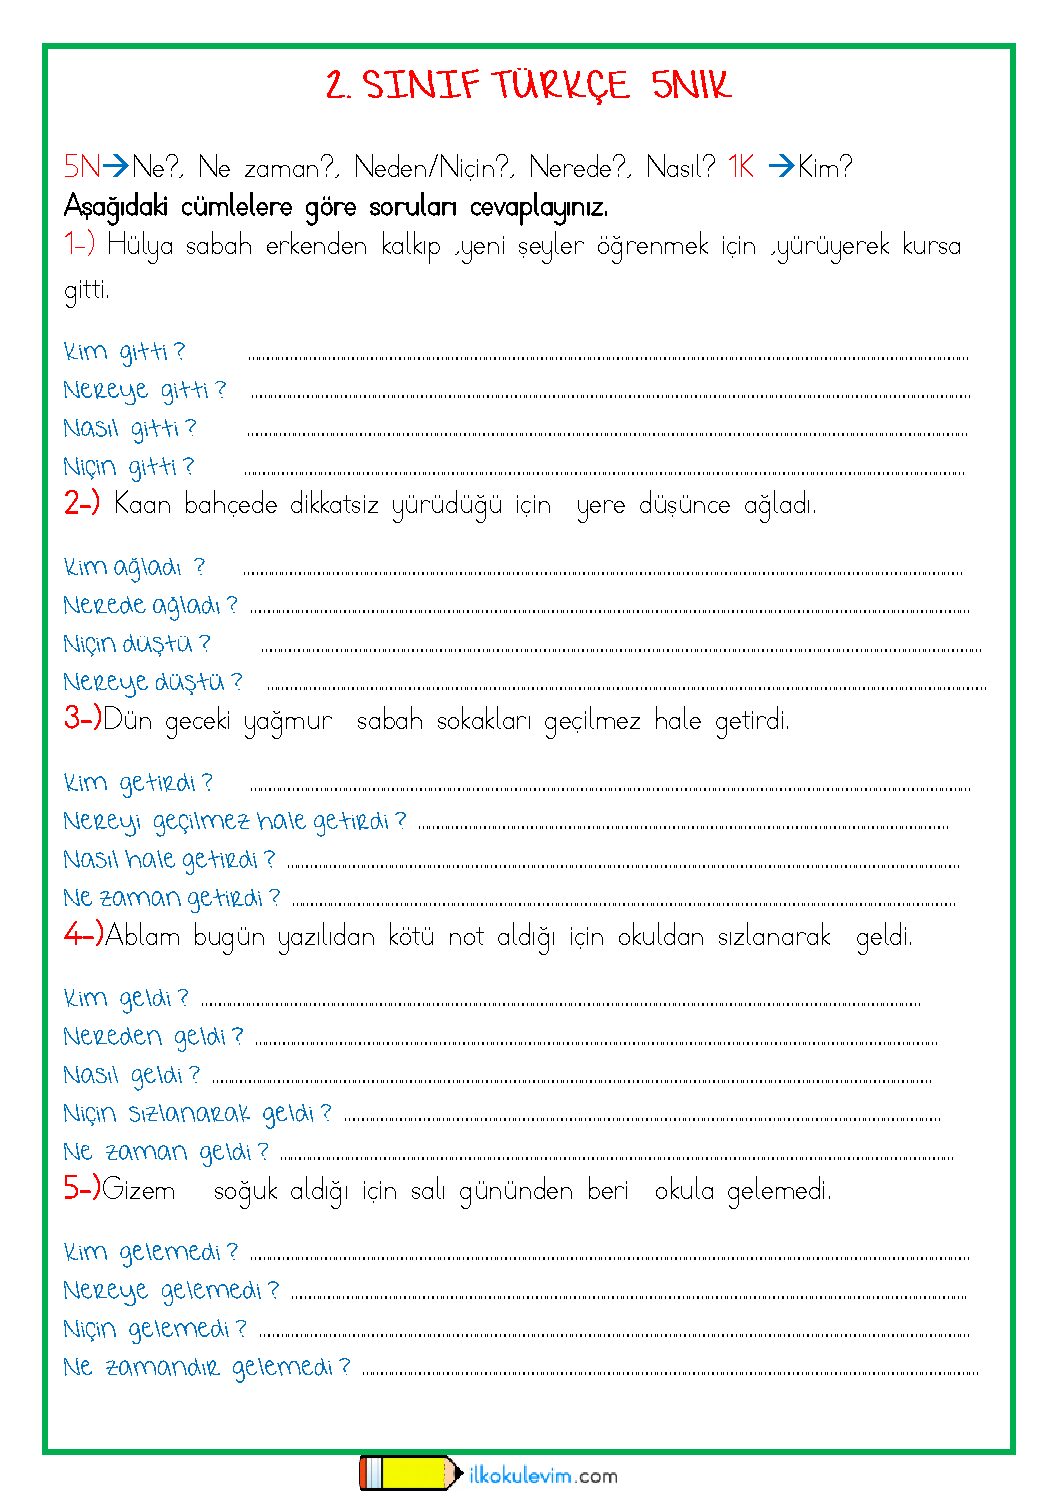 2. SINIF TÜRKÇE 5N1K
5N→Ne?, Ne zaman?, Neden/Niçin?, Nerede?, Nasıl? 1K →Kim?
Aşağıdaki cümlelere göre soruları cevaplayınız.
1-) Hülya sabah erkenden kalkıp ,yeni şeyler öğrenmek için ,yürüyerek kursa
gitti.
Kim gitti ? ........................................................................
Nereye gitti ? ........................................................................
Nasıl gitti ? ........................................................................
Niçin gitti ? ........................................................................
2-) Kaan bahçede dikkatsiz yürüdüğü için yere düşünce ağladı.
Kim ağladı ? ........................................................................
Nerede ağladı ? ........................................................................
Niçin düştü ? ........................................................................
Nereye düştü ? ........................................................................
3-)Dün geceki yağmur sabah sokakları geçilmez hale getirdi.
Kim getirdi ? ........................................................................
Nereyi geçilmez hale getirdi ? ........................................................................
Nasıl hale getirdi ? ........................................................................
Ne zaman getirdi ? ........................................................................
4-)Ablam bugün yazılıdan kötü not aldığı için okuldan sızlanarak geldi.
Kim geldi ? ........................................................................
Nereden geldi ? ........................................................................
Nasıl geldi ? ........................................................................
Niçin sızlanarak geldi ? ........................................................................
Ne zaman geldi ? ........................................................................
5-)Gizem soğuk aldığı için salı gününden beri okula gelemedi.
Kim gelemedi ? ........................................................................
Nereye gelemedi ? ........................................................................
Niçin gelemedi ? ........................................................................
Ne zamandır gelemedi ? ........................................................................
ilkokulevim.com